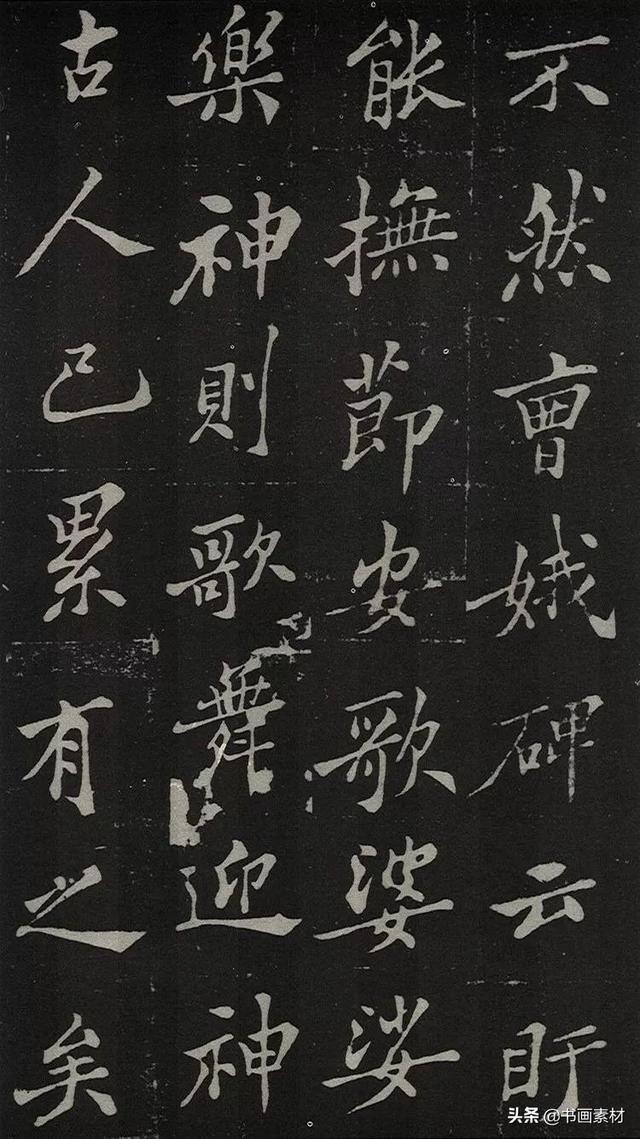 不然曹娥碑云盱
能撫節安歌婆娑
樂神則歌舞迎神
古人已累有之矣
头条 @书画素材